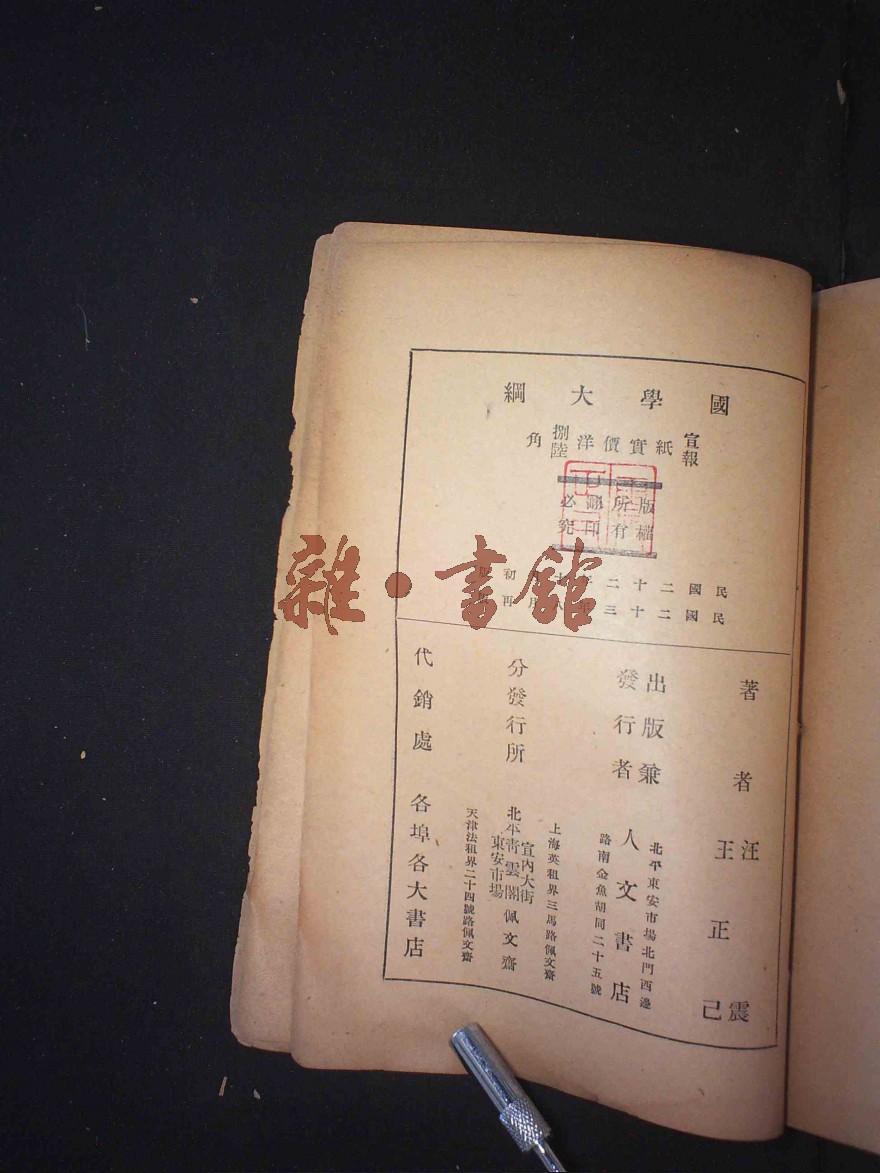 國學大綱
宣報紙實價洋捌陸角
版權所有
翻印必究
民國二十二初
民國二十三再
著者
汪震
王正己
出版兼發行者
人文書店
北平東安市場北門西邊
路南金魚胡同二十五號
分發行所
上海英租界三馬路佩文齋
北平宣內大街青雲閣東安市場佩文齋
天津法租界二十四號路佩文齋
代銷處
各埠各大書店
雜·書館